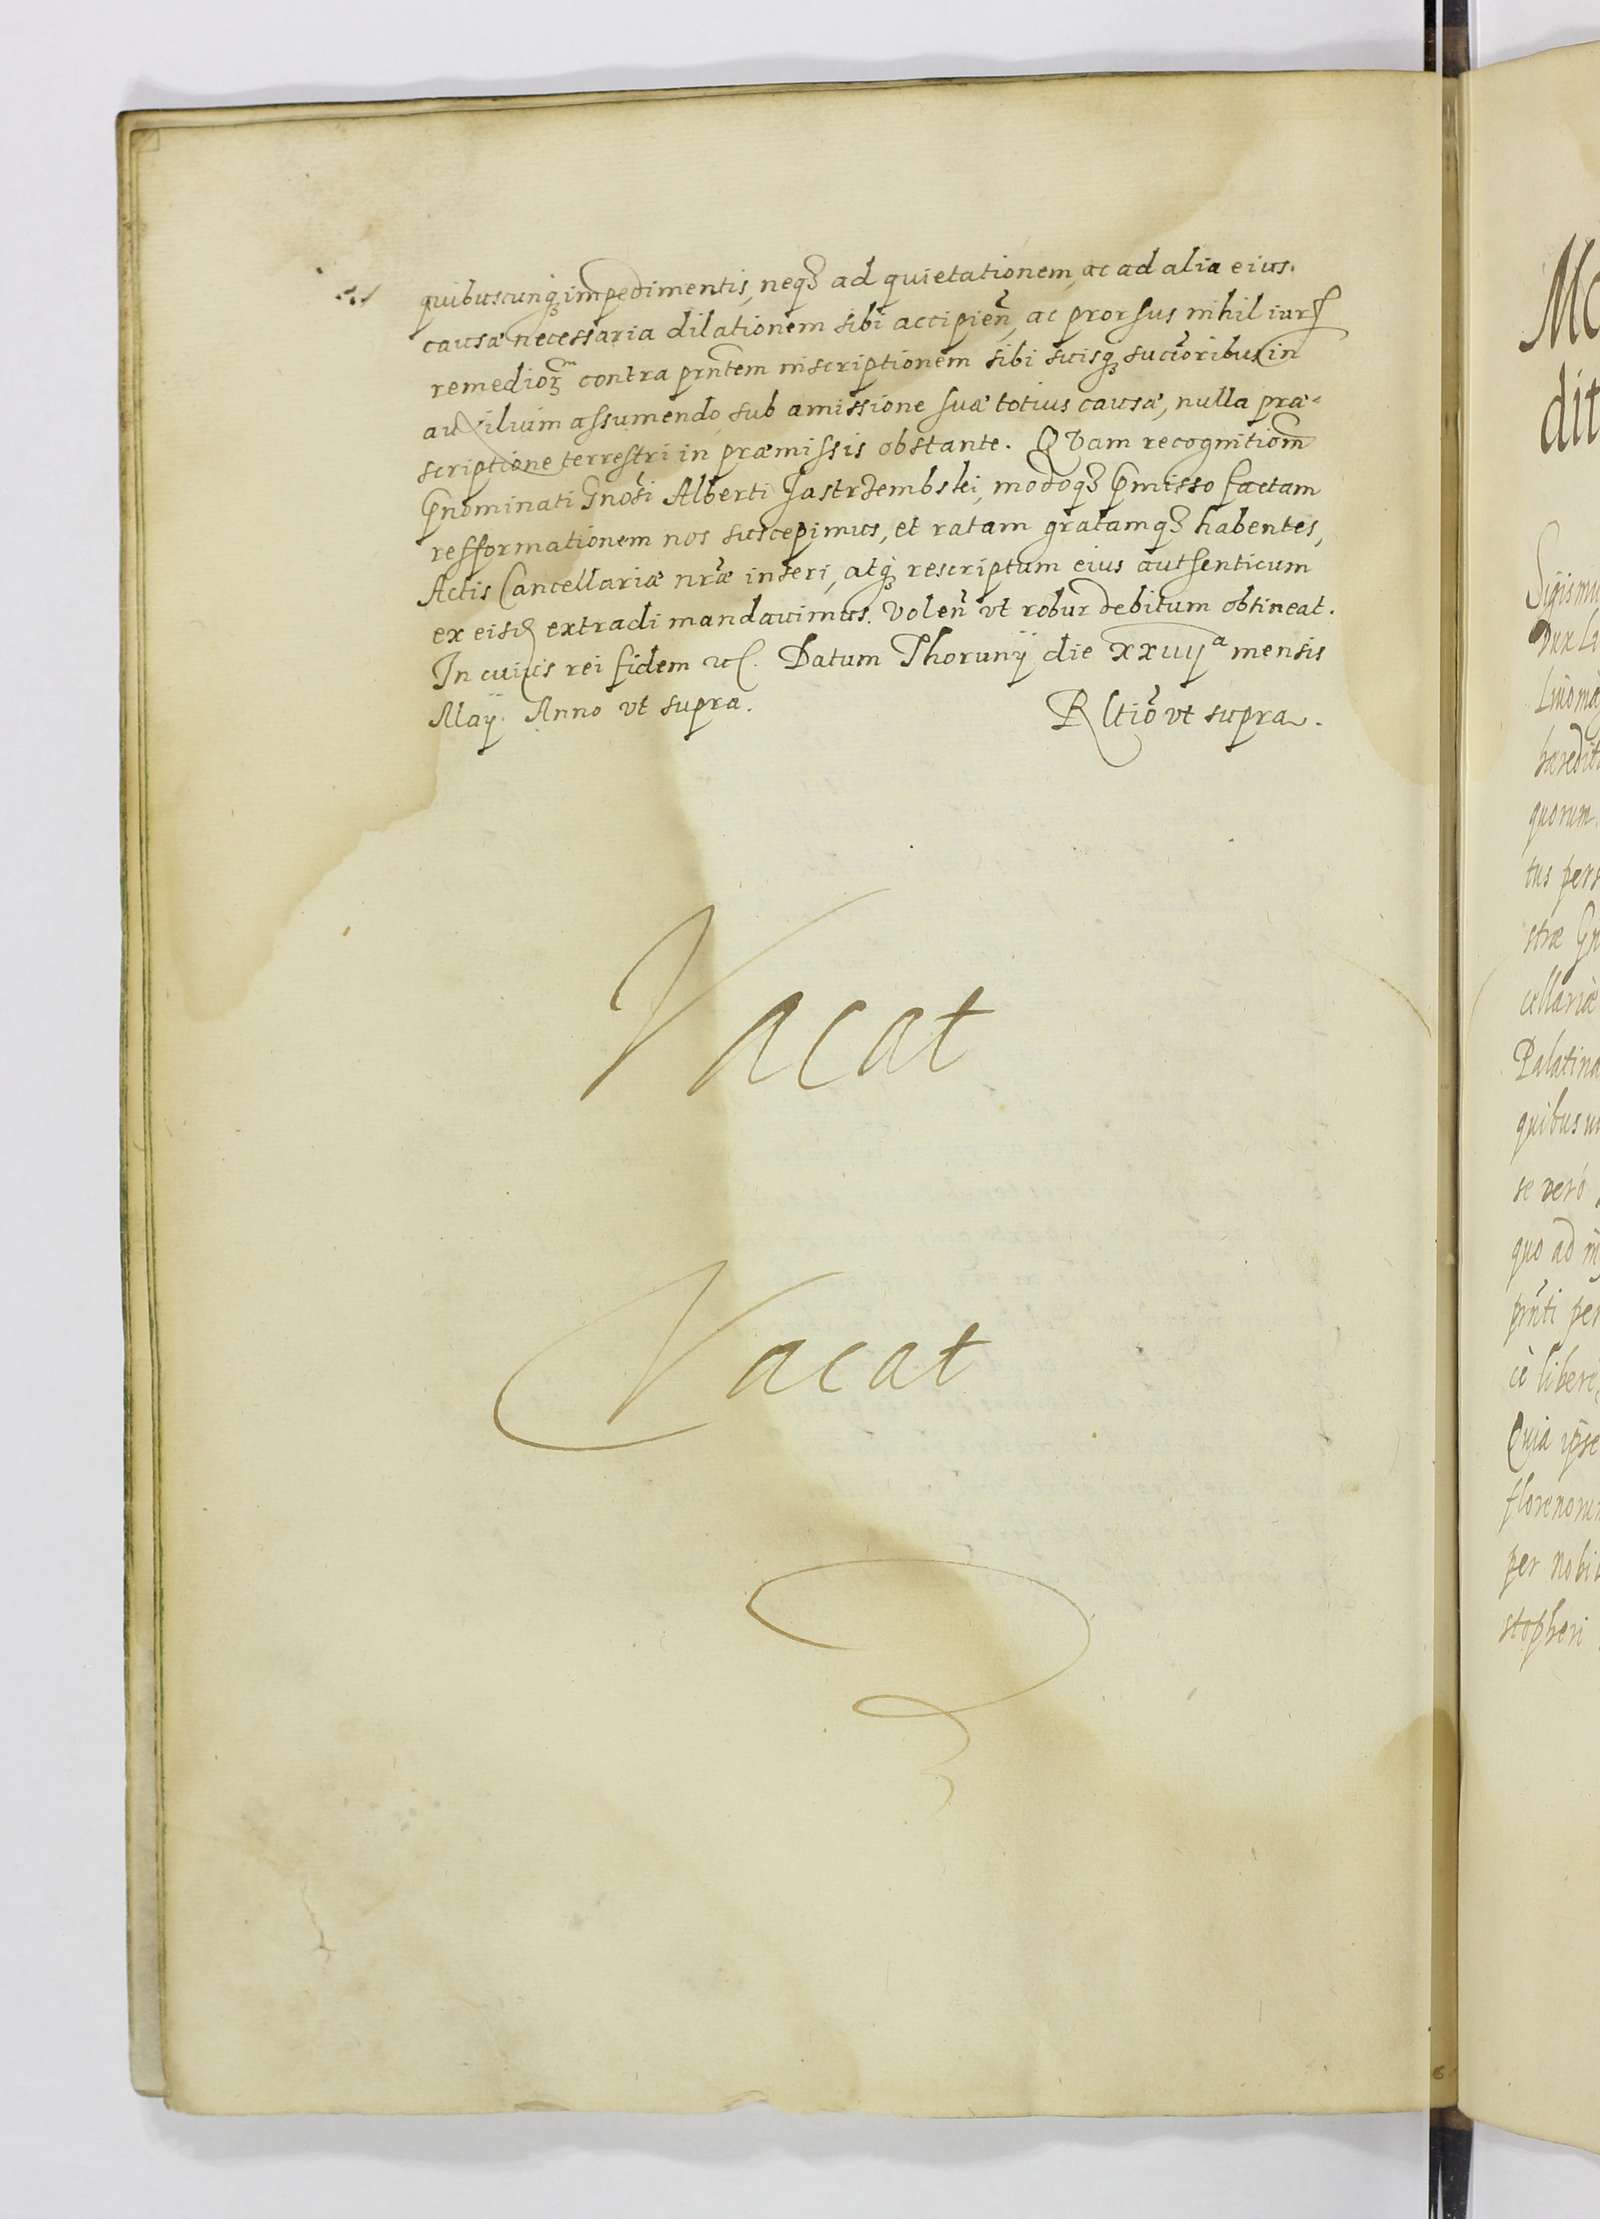 quibuscunqꝫ impedimentis, neqꝫ ad quietationem, ac ad alia eius
causæ necessaria dilationem sibi accipien̄, ac prorsus nihil iurꝭ
remedioꝝ contra prn̄tem inscriptionem sibi suisqꝫ suc̄oribus in
auxilium assumendo, sub amissione suæ totius causæ, nulla præ-
scriptione terrestri in præmissis obstante. QVam recognitiom̄
Pnominati Gnosi Alberti Jastrzembskei, modoqꝫ Pmisso factam
refformationem nos suscepimus, et ratam gratamqꝫ habentes,
Actis Cancellariæ nr̄æ inseri, atqꝫ rescriptum eius authenticum
ex eisđ extradi mandavimus. Volen̄ vt robur debitum obtineat.
In cuius rei fidem ꝛc. Datum Thorunÿ die xxvijª mensis
Maÿ. Anno vt supra.
Rltiō vt supra.
Vacat
Vacat
Mo
dit
Sigismu
Dux Li
Livo
hæredit
quorum
tus pers
stræ Gn
cellariæ
Palatina
quibus
se vero
quo ad
prn̄ti per
cè liberè
Quia ipse
florenoru
per Nobi
stopheri
6